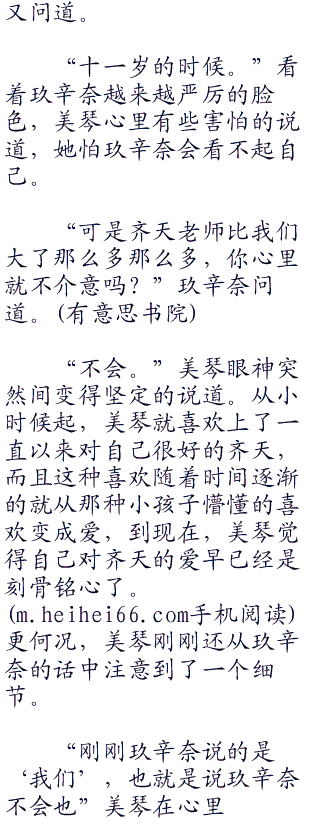 又问道。
“十一岁的时候。”看
着玖辛奈越来越严厉的脸
色，美琴心里有些害怕的说
道，她怕玖辛奈会看不起自
己。
“可是齐天老师比我们
大了那么多那么多，你心里
就不介意吗？”玖辛奈问
道。(有意思书院)
“不会。”美琴眼神突
然间变得坚定的说道。从小
时候起，美琴就喜欢上了一
直以来对自己很好的齐天，
而且这种喜欢随着时间逐渐
的就从那种小孩子懵懂的喜
欢变成爱，到现在，美琴觉
得自己对齐天的爱早已经是
刻骨铭心了。
(m.heihei66.com手机阅读)
更何况，美琴刚刚还从玖辛
奈的话中注意到了一个细
节。
“刚刚玖辛奈说的是
‘我们’，也就是说玖辛奈
不会也”美琴在心里